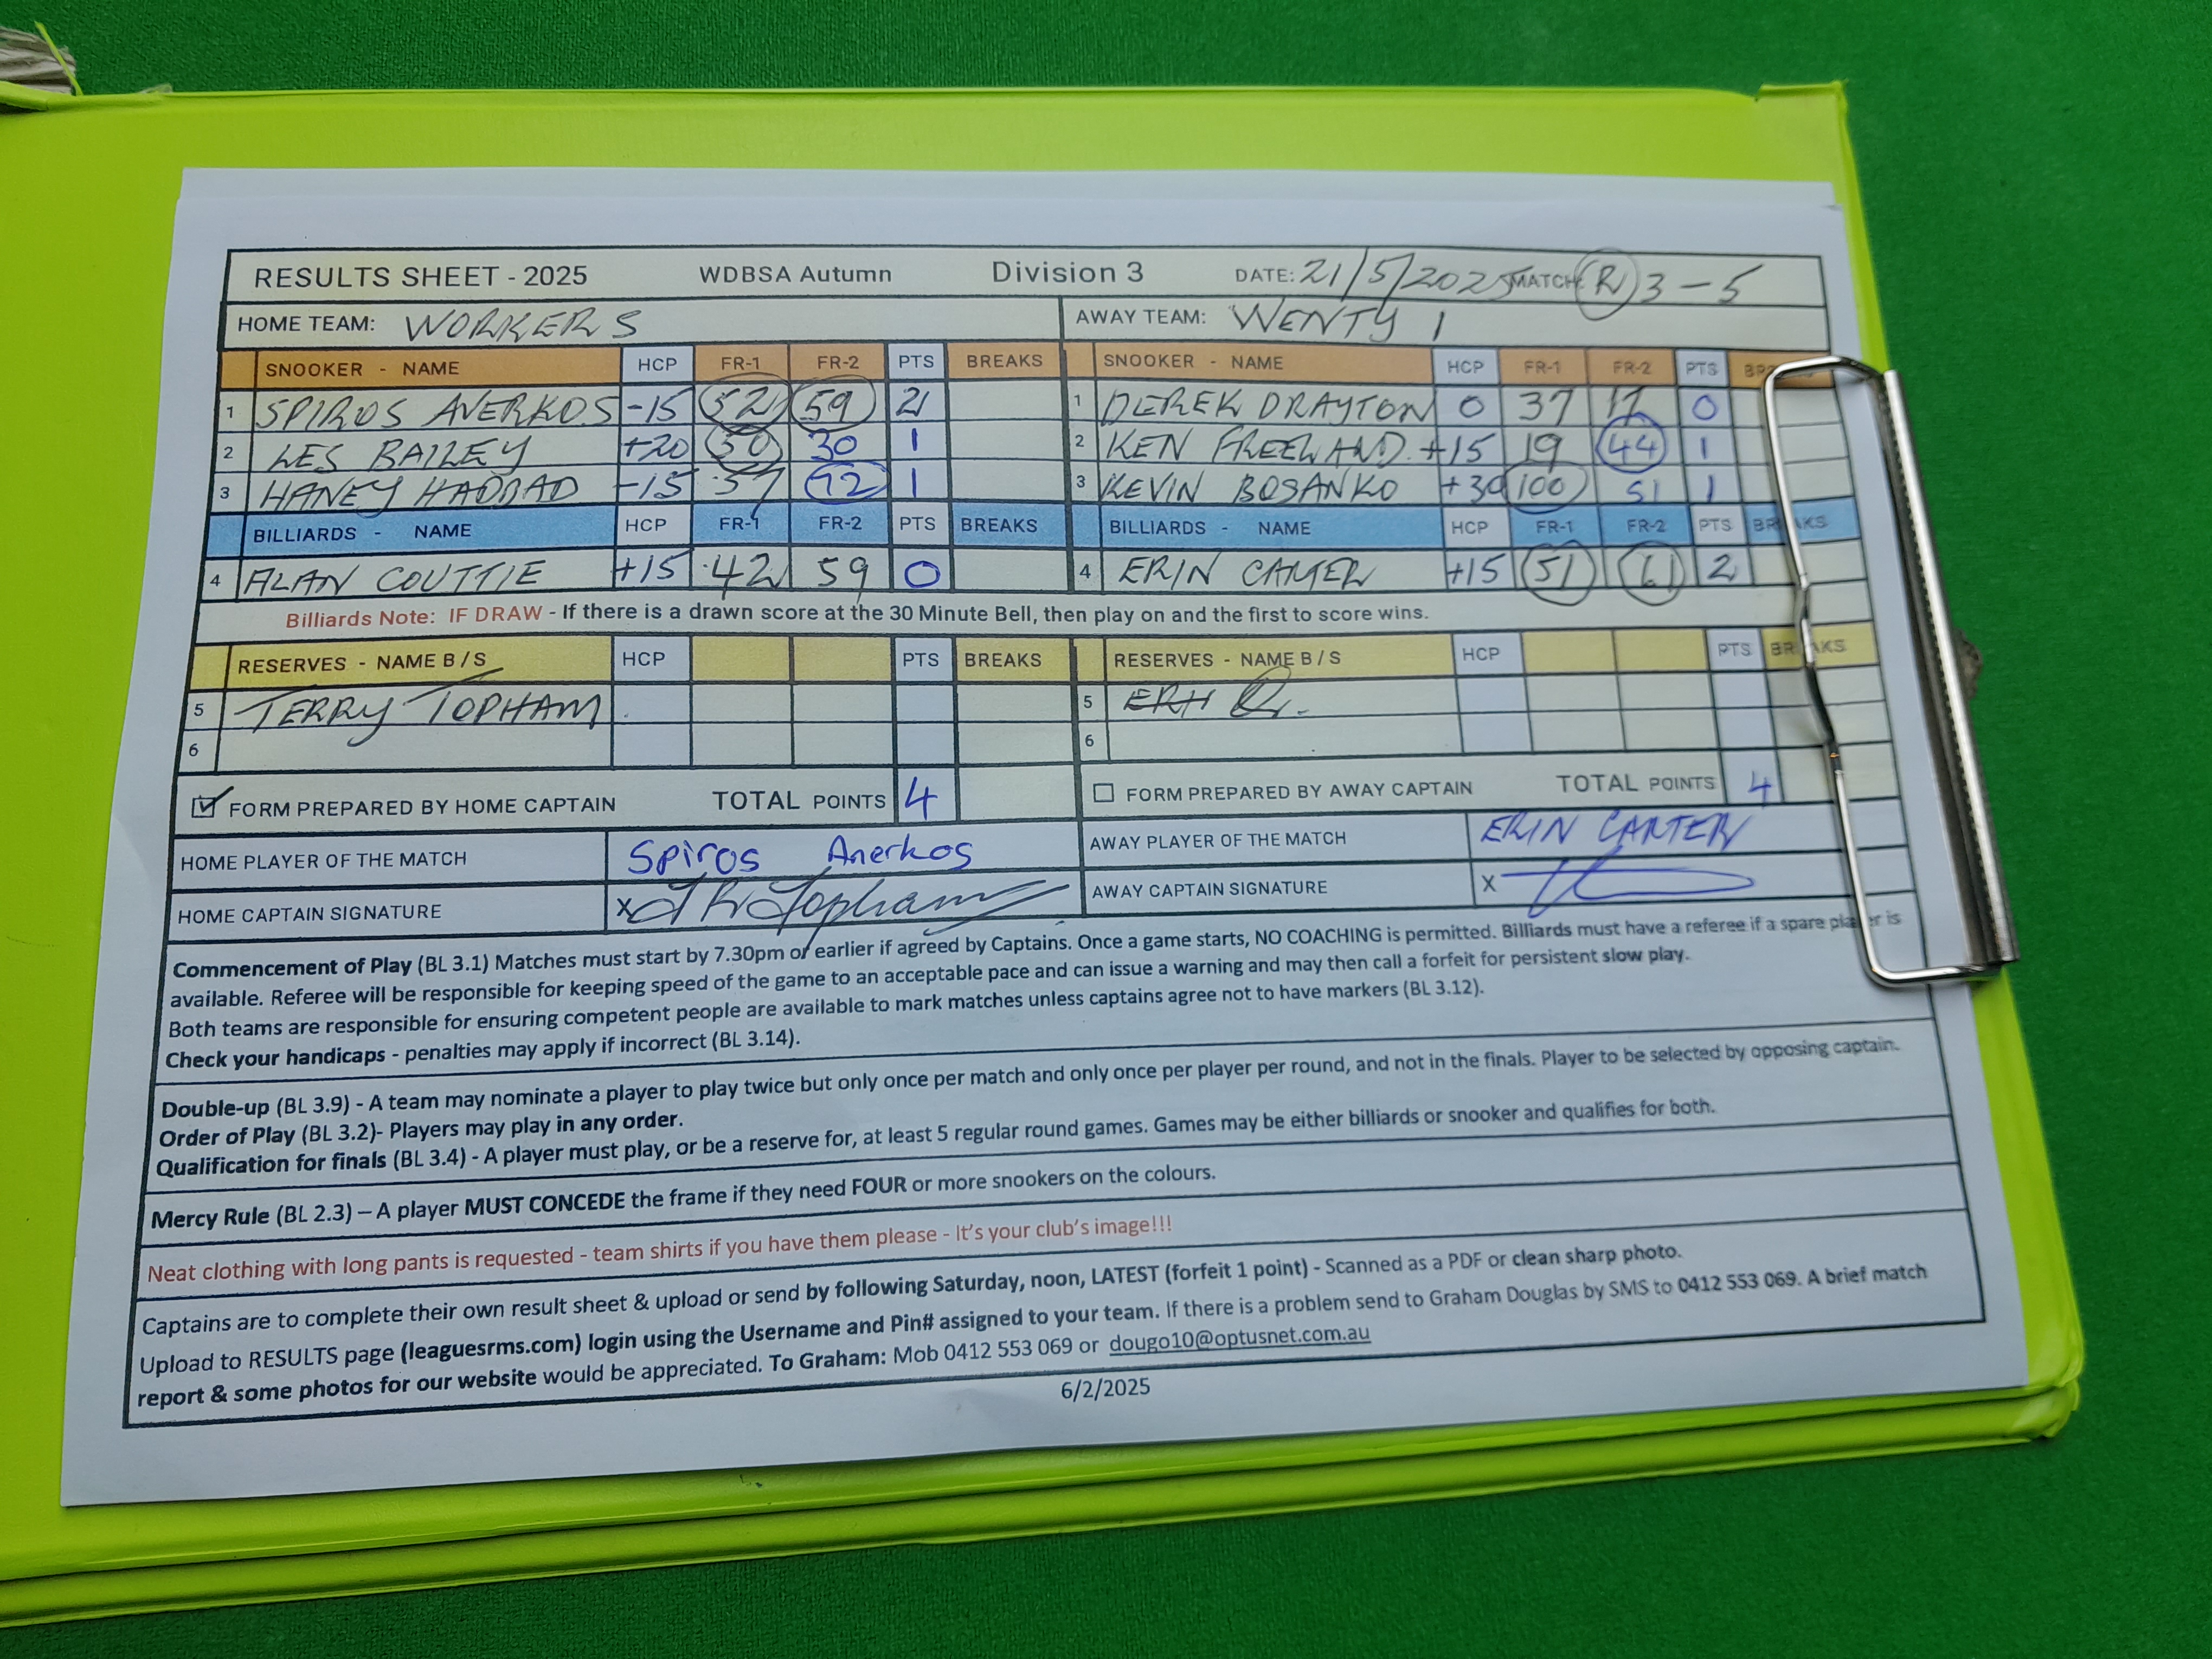 RESULTS SHEET - 2025 WDBSA Autumn Division 3 DATE: 21/5/2025 MATCH: R 3-5
HOME TEAM: WORKERS AWAY TEAM: WENTY 1
SNOOKER - NAME HCP FR-1 FR-2 PTS BREAKS SNOOKER - NAME HCP FR-1 FR-2 PTS
1 SPIROS AVERKOS -15 52 59 2 1 DEREK DRAYTON 0 37 17 0
2 LES BAILEY +20 50 30 1 2 KEN FREELAND. +15 19 44 1
3 HANEY HADDAD -15 57 72 1 3 KEVIN BOSANKO +30 100 51 1
BILLIARDS - NAME HCP FR-1 FR-2 PTS BREAKS BILLIARDS - NAME HCP FR-1 FR-2 PTS BREAKS
4 ALAN COUTTIE +15 42 59 0 4 ERIN CARTER +15 51 61 2
Billiards Note: IF DRAW - If there is a drawn score at the 30 Minute Bell, then play on and the first to score wins.
RESERVES - NAME B / S HCP PTS BREAKS RESERVES - NAME B / S HCP PTS BREAKS
5 TERRY TOPHAM 5
6 6
FORM PREPARED BY HOME CAPTAIN TOTAL POINTS 4 FORM PREPARED BY AWAY CAPTAIN TOTAL POINTS 4
HOME PLAYER OF THE MATCH Spiros Anerkos AWAY PLAYER OF THE MATCH ERIN CARTER
HOME CAPTAIN SIGNATURE X Topham AWAY CAPTAIN SIGNATURE X
Commencement of Play (BL 3.1) Matches must start by 7.30pm or earlier if agreed by Captains. Once a game starts, NO COACHING is permitted. Billiards must have a referee if a spare player is
available. Referee will be responsible for keeping speed of the game to an acceptable pace and can issue a warning and may then call a forfeit for persistent slow play.
Both teams are responsible for ensuring competent people are available to mark matches unless captains agree not to have markers (BL 3.12).
Check your handicaps - penalties may apply if incorrect (BL 3.14).
Double-up (BL 3.9) - A team may nominate a player to play twice but only once per match and only once per player per round, and not in the finals. Player to be selected by opposing captain.
Order of Play (BL 3.2)- Players may play in any order.
Qualification for finals (BL 3.4) - A player must play, or be a reserve for, at least 5 regular round games. Games may be either billiards or snooker and qualifies for both.
Mercy Rule (BL 2.3) – A player MUST CONCEDE the frame if they need FOUR or more snookers on the colours.
Neat clothing with long pants is requested - team shirts if you have them please - It's your club's image!!!
Captains are to complete their own result sheet & upload or send by following Saturday, noon, LATEST (forfeit 1 point) - Scanned as a PDF or clean sharp photo.
Upload to RESULTS page (leaguesrms.com) login using the Username and Pin# assigned to your team. If there is a problem send to Graham Douglas by SMS to 0412 553 069. A brief match
report & some photos for our website would be appreciated. To Graham: Mob 0412 553 069 or dougo10@optusnet.com.au
6/2/2025